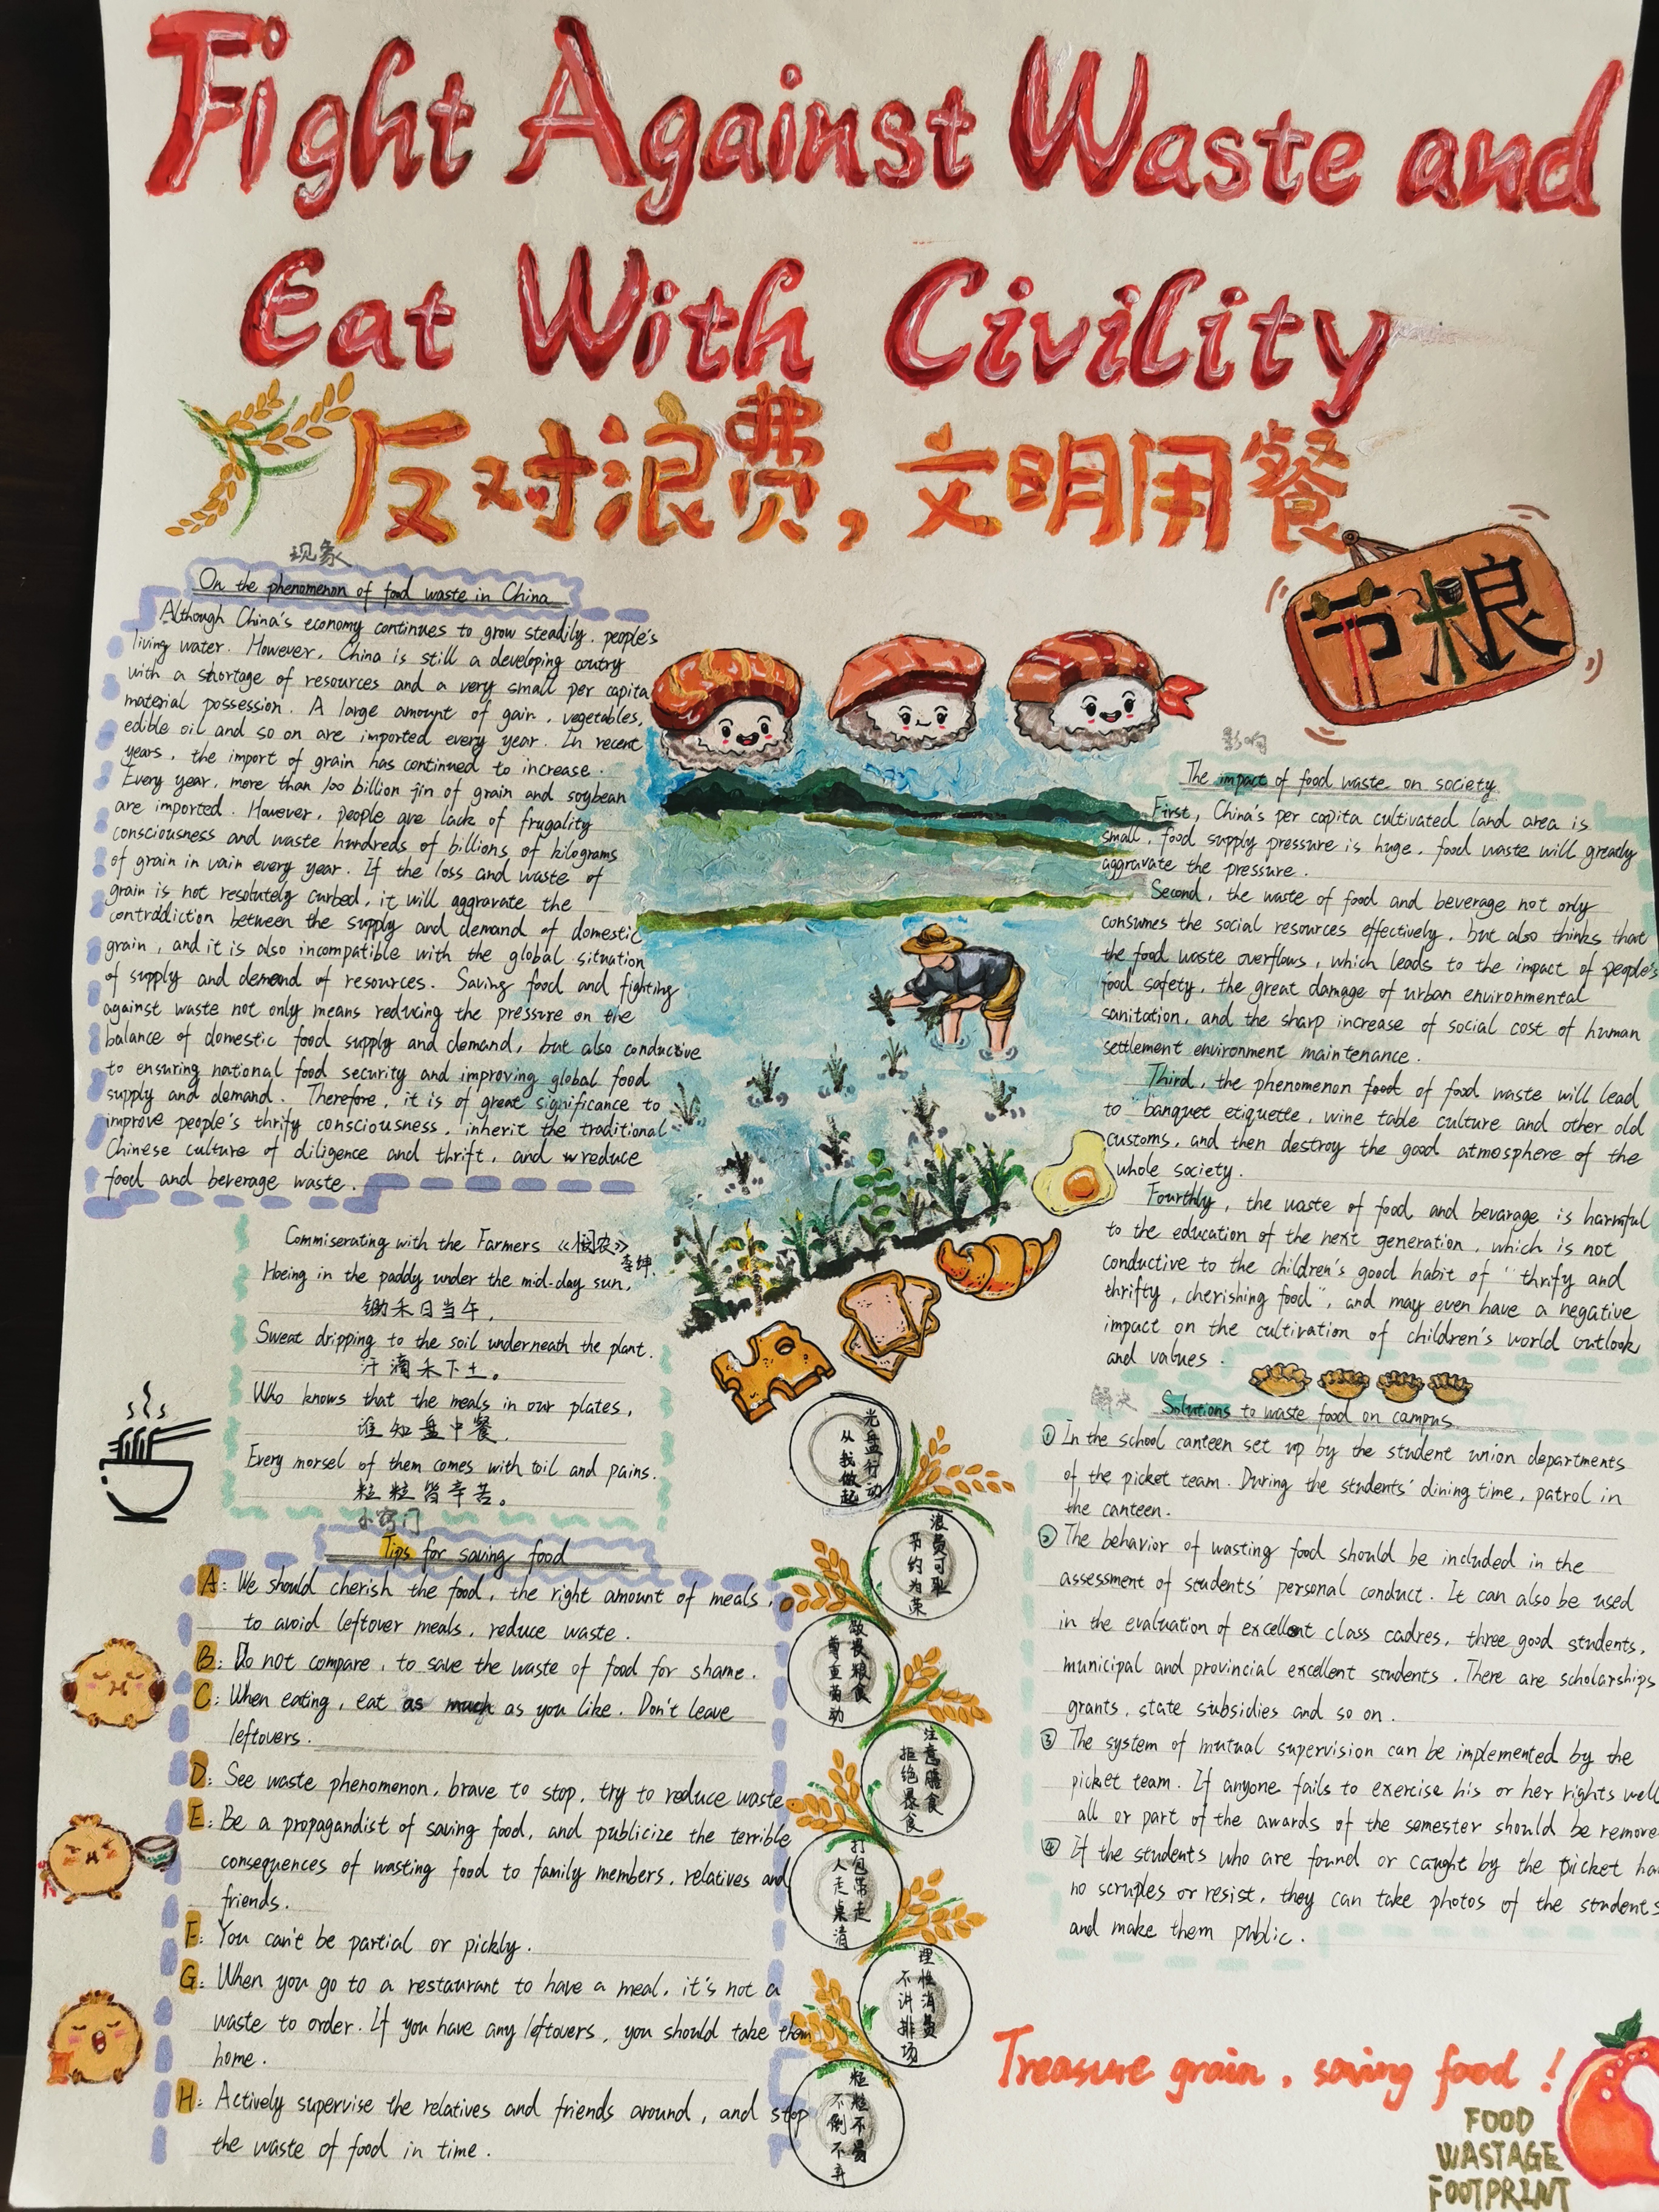 Fight Against Waste and
Eat With Civility
反对浪费，文明用餐
节粮
现象
On the phenomenon of food waste in China
Although China's economy continues to grow steadily, people's
living water. However, China is still a developing coutry
with a shortage of resources and a very small per capita
material possession. A large amount of gain, vegetables,
edible oil and so on are imported every year. In recent
years, the import of grain has continued to increase.
Every year, more than 100 billion jin of grain and soybean
are imported. However, people are lack of frugality
consciousness and waste hundreds of billions of kilograms
of grain in vain every year. If the loss and waste of
grain is not resolutely curbed, it will aggravate the
contraddiction between the supply and demand of domestic
grain, and it is also incompatible with the global situation
of supply and demand of resources. Saving food and fighting
against waste not only means reducing the pressure on the
balance of domestic food supply and demand, but also conductive
to ensuring national food security and improving global food
supply and demand. Therefore, it is of great significance to
improve people's thrify consciousness, inherit the traditional
Chinese culture of diligence and thrift, and reduce
food and beverage waste.
Commiserating with the Farmers 《悯农》
李绅
Hoeing in the paddy under the mid-day sun,
锄禾日当午,
Sweat dripping to the soil underneath the plant.
汗滴禾下土。
Who knows that the meals in our plates,
谁知盘中餐,
Every morsel of them comes with toil and pains.
粒粒皆辛苦。
小窍门
Tips for saving food
A: We should cherish the food, the right amount of meals,
to avoid leftover meals, reduce waste.
B: Do not compare, to save the waste of food for shame.
C: When eating, eat as much as you like. Don't leave
leftovers.
D: See waste phenomenon, brave to stop, try to reduce waste
E: Be a propagandist of saving food, and publicize the terrible
consequences of wasting food to family members, relatives and
friends.
F: You can't be partial or pickly.
G: When you go to a restaurant to have a meal, it's not a
waste to order. If you have any leftovers, you should take them
home.
H: Actively supervise the relatives and friends around, and stop
the waste of food in time.
光盘行动
从我做起
浪费可耻
节约为荣
敬畏粮食
尊重劳动
注意膳食
拒绝暴食
打包带走
人走桌清
理性消费
不讲排场
粒粒不易
不倒不弃
影响
The impact of food waste on society
First, China's per capita cultivated land area is
small, food supply pressure is huge, food waste will greatly
aggravate the pressure.
Second, the waste of food and beverage not only
consumes the social resources effectively, but also thinks that
the food waste overflows, which leads to the impact of people's
food safety, the great damage of urban environmental
sanitation, and the sharp increase of social cost of human
settlement environment maintenance.
Third, the phenomenon of food waste will lead
to "banquet etiquette, wine table culture and other old
customs, and then destroy the good atmosphere of the
whole society.
Fourthly, the waste of food and bevarage is harmful
to the education of the next generation, which is not
conductive to the children's good habit of "thrify and
thrifty, cherishing food", and may even have a negative
impact on the cultivation of children's world outlook
and values.
解决
Solutions to waste food on campus
① In the school canteen set up by the student union departments
of the picket team. During the students' dining time, patrol in
the canteen.
② The behavior of wasting food should be included in the
assessment of students' personal conduct. It can also be used
in the evaluation of excellent class cadres, three good students,
municipal and provincial excellent students. There are scholarships
grants, state subsidies and so on.
③ The system of mutual supervision can be implemented by the
picket team. If anyone fails to exercise his or her rights well
all or part of the awards of the semester should be remove
④ If the students who are found or caught by the picket ha
no scruples or resist, they can take photos of the students
and make them public.
Treasure grain, saving food!
FOOD
WASTAGE
FOOTPRINT